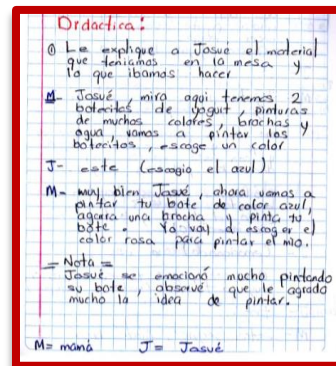 Didactica:
① Le explique a Josué el material
que teniamos en la mesa y
lo que ibamos hacer
M- Josué, mira aqui tenemos 2
botecitos de yogurt, pinturas
de muchos colores, brochas y
agua, vamos a pintar los
botecitos, escoge un color
J- este (escogio el azul)
M- muy bien Josué, ahora vamos a
pintar tu bote de color azul,
agarra una brocha y pinta tu
bote. Yo voy a escoger el
color rosa para pintar el mio.
= Nota =
Josué se emocionó mucho pintando
su bote, observé que le agrado
mucho la idea de pintar.
M= mamá J= Josué